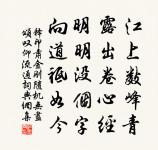 江上數峰青
露出卷心經
明明沒個字
向道祇如今
釋印肅金剛隨機無盡
頌叹仰流通詞典網集